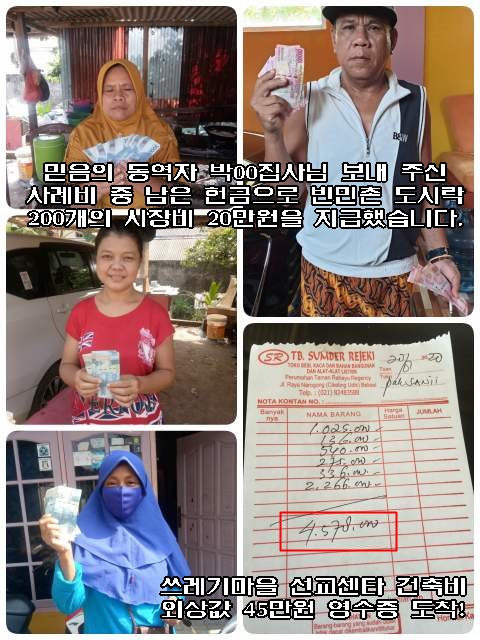 믿음의 동역자 박00집사님 보내 주신
사례비 중 남은 헌금으로 빈민촌 도시락
200개의 시장비 20만원을 지급했습니다.
SR TB. SUMBER REJEKI
TOKO BESI, KACA DAN BAHAN BANGUNAN
DAN ALAT-ALAT LISTRIK
Perumahan Taman Rahayu Regency
Jl. Raya Narogong (Cikeling Udik) Bekasi
Telp. : (021) 82483588
20/8 2020
Tuan
Toko
NOTA KONTAN NO. :
Banyak nya. NAMA BARANG Harga Satuan JUMLAH
1.025.000
136.000
540.000
275.000
336.000
2.266.000
4.578.000
쓰레기마을 선교센타 건축비
외상값 45만원 영수증 도착!